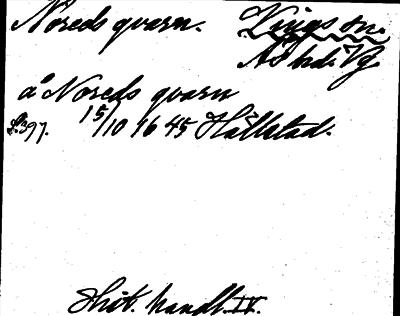 Noreds qvarn. Kings sn.
Ås hd. Vg
å Noreds qvarn
s. 397. 15/10 1645 Hällstad.
Hist. handl. IV.